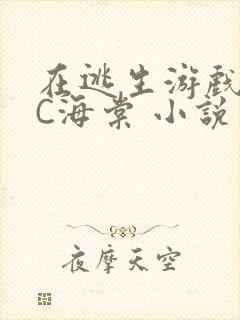 在逃生游戏
C海棠 小説
夜摩天空